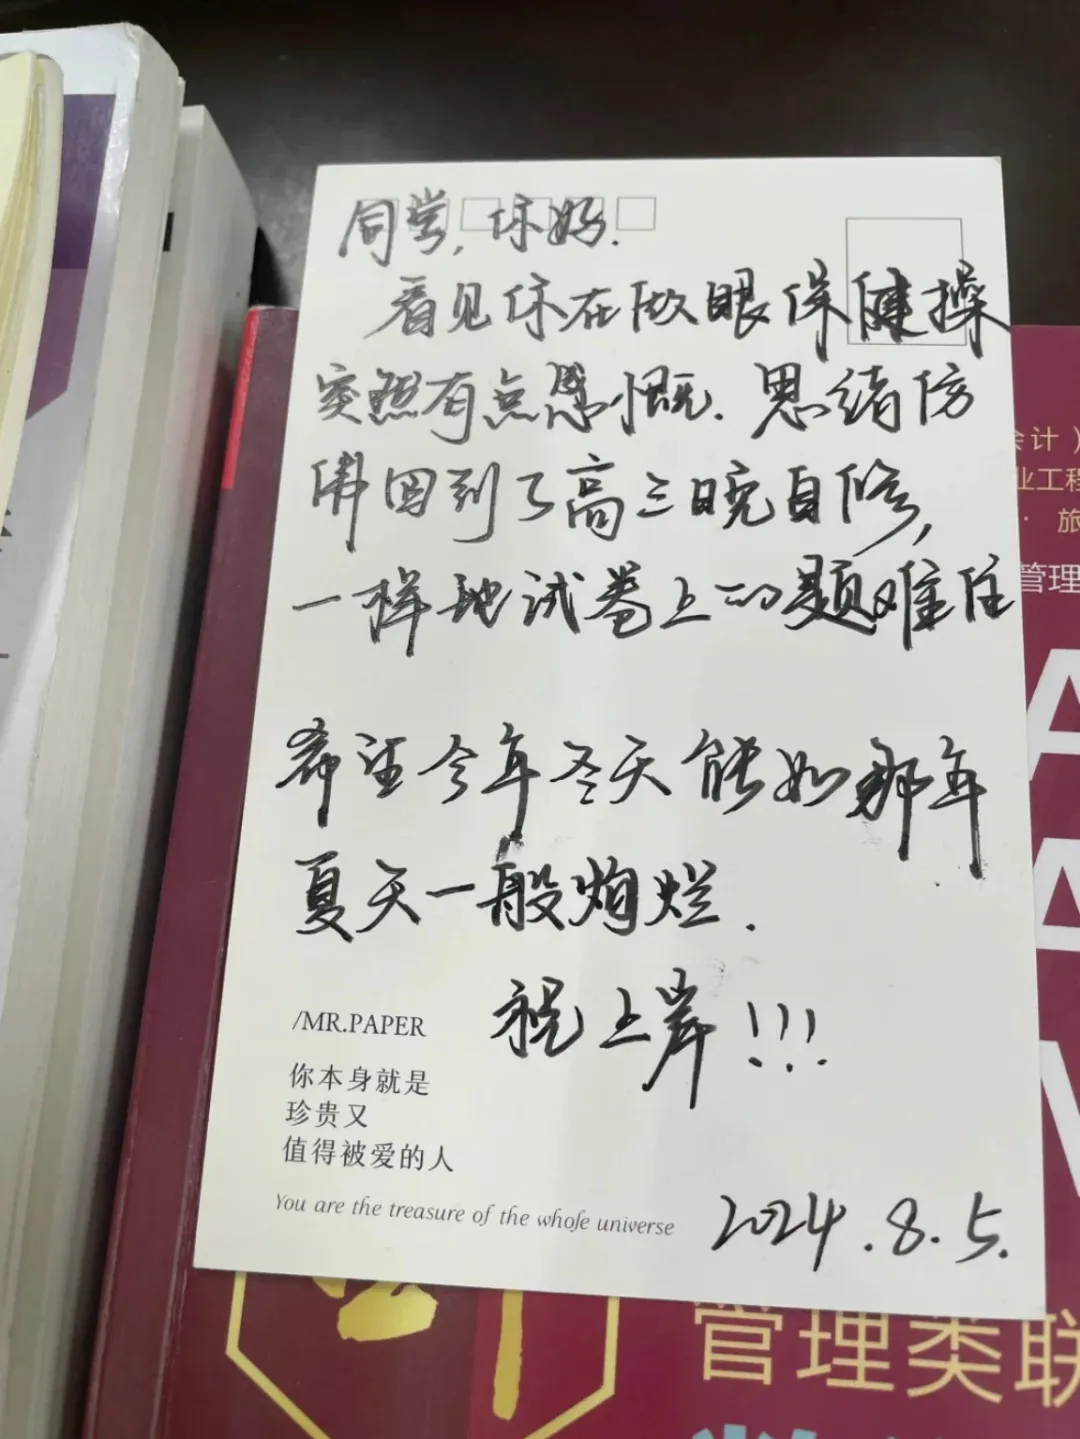 同学，你好.
看见你在做眼保健操
突然有点感慨.思绪仿
佛回到了高三晚自修，
一样地试卷上的题难住
希望今年冬天能如那年
夏天一般炽烂.
祝上岸!!!
/MR.PAPER
你本身就是
珍贵又
值得被爱的人
You are the treasure of the whole universe
2024.8.5.
会计）
业工程
· 旅
管理
A
A
管理类联